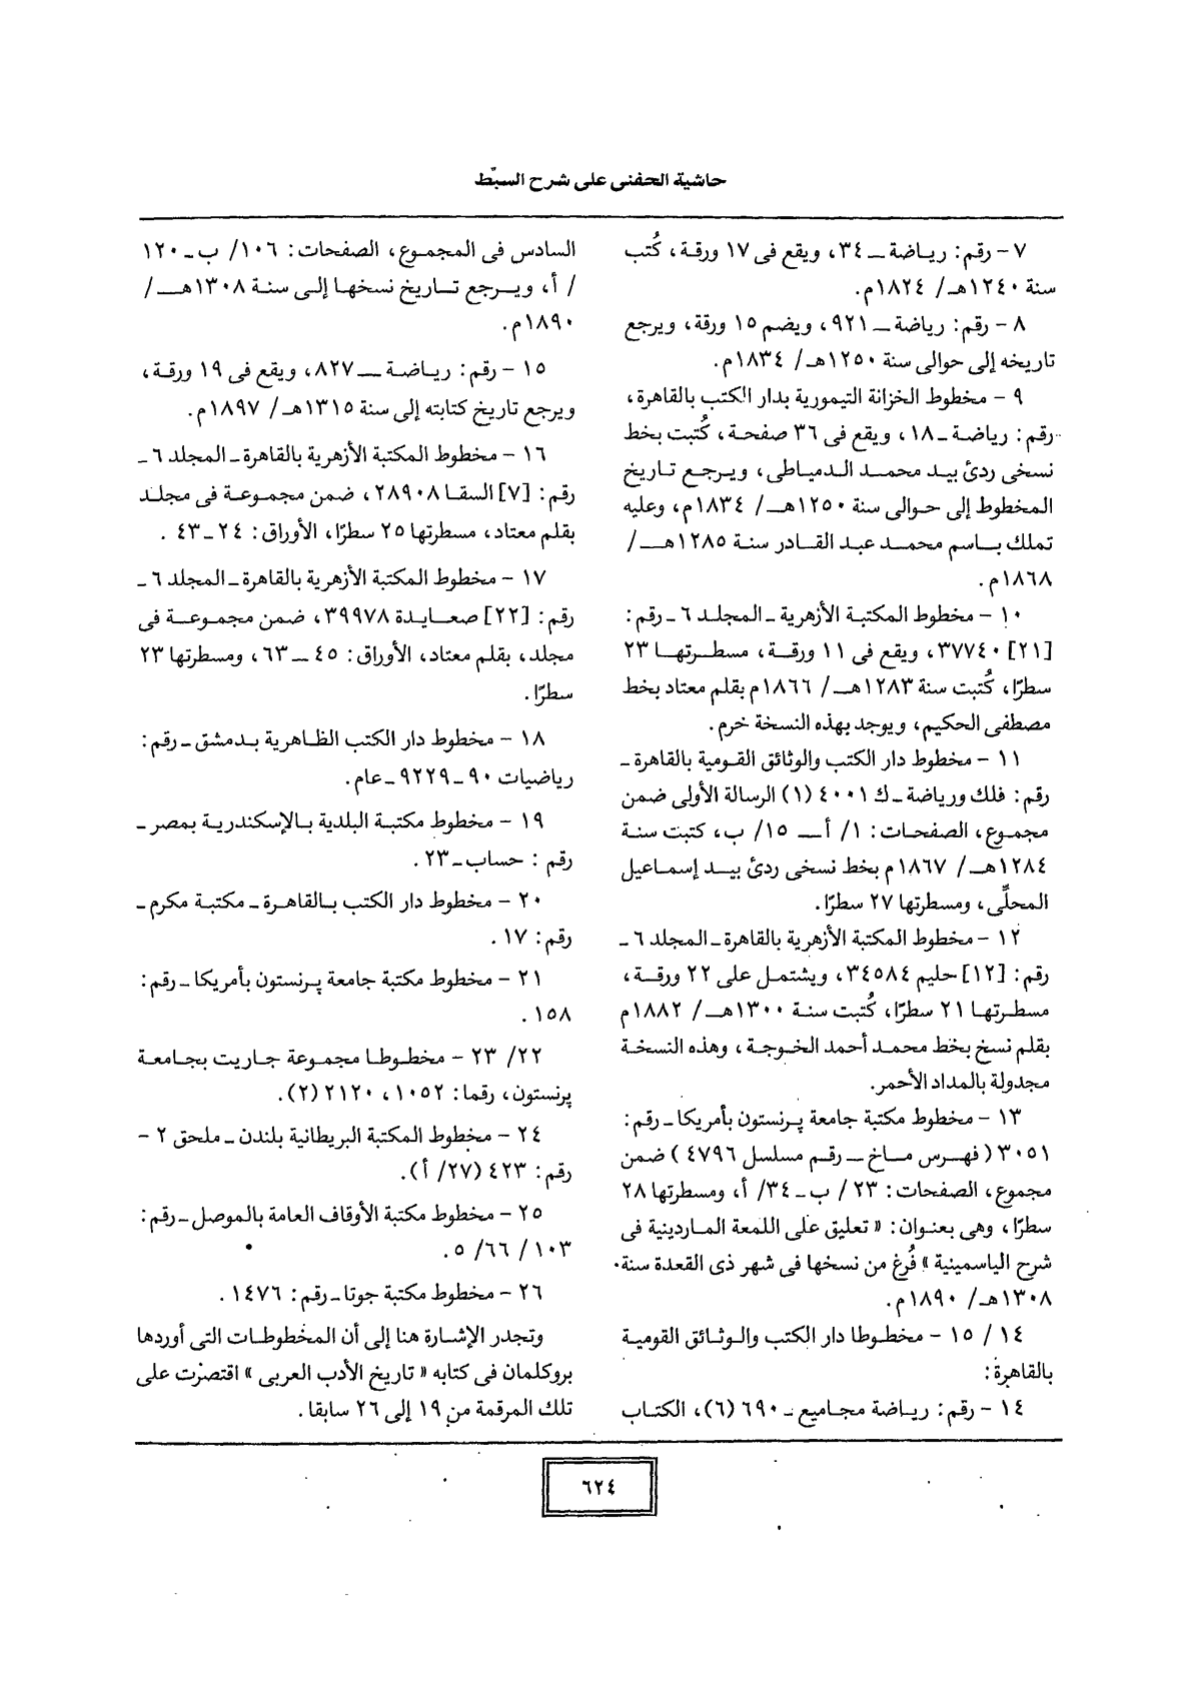 حاشية الحفنى على شرح السبّط
٧ - رقم: رياضة ـ ٣٤، ويقع فى ١٧ ورقة، كُتب
سنة ١٢٤٠هـ/ ١٨٢٤م.
٨ - رقم: رياضة ـ ٩٢١، ويضم ١٥ ورقة، ويرجع
تاريخه إلى حوالى سنة ١٢٥٠هـ/ ١٨٣٤م.
٩ - مخطوط الخزانة التيمورية بدار الكتب بالقاهرة،
رقم: رياضة ـ ١٨، ويقع فى ٣٦ صفحة، كُتبت بخط
نسخى ردئ بيد محمد الدمياطى، ويرجع تاريخ
المخطوط إلى حوالى سنة ١٢٥٠هـ/ ١٨٣٤م، وعليه
تملك باسم محمد عبد القادر سنة ١٢٨٥هـ/
١٨٦٨م.
١٠ - مخطوط المكتبة الأزهرية ـ المجلد ٦ ـ رقم:
[٢١] ٣٧٧٤٠، ويقع فى ١١ ورقة، مسطرتها ٢٣
سطرًا، كُتبت سنة ١٢٨٣هـ/ ١٨٦٦م بقلم معتاد بخط
مصطفى الحكيم، ويوجد بهذه النسخة خرم.
١١ - مخطوط دار الكتب والوثائق القومية بالقاهرة ـ
رقم: فلك ورياضة ـ ك ٤٠٠١ (١) الرسالة الأولى ضمن
مجموع، الصفحات: ١/ أ ـ ١٥/ ب، كتبت سنة
١٢٨٤هـ/ ١٨٦٧م بخط نسخى ردئ بيد إسماعيل
المحلّى، ومسطرتها ٢٧ سطرًا.
١٢ - مخطوط المكتبة الأزهرية بالقاهرة ـ المجلد ٦ ـ
رقم: [١٢] حليم ٣٤٥٨٤، ويشتمل على ٢٢ ورقة،
مسطرتها ٢١ سطرًا، كُتبت سنة ١٣٠٠هـ/ ١٨٨٢م
بقلم نسخ بخط محمد أحمد الخوجة، وهذه النسخة
مجدولة بالمداد الأحمر.
١٣ - مخطوط مكتبة جامعة پرنستون بأمريكا ـ رقم:
٣٠٥١ (فهرس ماخ ـ رقم مسلسل ٤٧٩٦) ضمن
مجموع، الصفحات: ٢٣ / ب ـ ٣٤/ أ، ومسطرتها ٢٨
سطرًا، وهى بعنوان: « تعليق على اللمعة الماردينية فى
شرح الياسمينية » فُرغ من نسخها فى شهر ذى القعدة سنة
١٣٠٨هـ/ ١٨٩٠م.
١٤ / ١٥ - مخطوطا دار الكتب والوثائق القومية
بالقاهرة:
١٤ - رقم: رياضة مجاميع ـ ٦٩٠ (٦)، الكتاب
السادس فى المجموع، الصفحات: ١٠٦/ ب ـ ١٢٠
/ أ، ويرجع تاريخ نسخها إلى سنة ١٣٠٨هـ/
١٨٩٠م.
١٥ - رقم: رياضة ـ ٨٢٧، ويقع فى ١٩ ورقة،
ويرجع تاريخ كتابته إلى سنة ١٣١٥هـ/ ١٨٩٧م.
١٦ - مخطوط المكتبة الأزهرية بالقاهرة ـ المجلد ٦ ـ
رقم: [٧] السقا ٢٨٩٠٨، ضمن مجموعة فى مجلد
بقلم معتاد، مسطرتها ٢٥ سطرًا، الأوراق: ٢٤ ـ ٤٣ .
١٧ - مخطوط المكتبة الأزهرية بالقاهرة ـ المجلد ٦ ـ
رقم: [٢٢] صعايدة ٣٩٩٧٨، ضمن مجموعة فى
مجلد، بقلم معتاد، الأوراق: ٤٥ ـ ٦٣، ومسطرتها ٢٣
سطرًا.
١٨ - مخطوط دار الكتب الظاهرية بدمشق ـ رقم:
رياضيات ٩٠ ـ ٩٢٢٩ ـ عام.
١٩ - مخطوط مكتبة البلدية بالإسكندرية بمصر ـ
رقم : حساب ـ ٢٣ .
٢٠ - مخطوط دار الكتب بالقاهرة ـ مكتبة مكرم ـ
رقم: ١٧ .
٢١ - مخطوط مكتبة جامعة پرنستون بأمريكا ـ رقم:
١٥٨ .
٢٢/ ٢٣ - مخطوطا مجموعة جاريت بجامعة
پرنستون، رقما: ١٠٥٢، ٢١٢٠ (٢).
٢٤ - مخطوط المكتبة البريطانية بلندن ـ ملحق ٢ -
رقم: ٤٢٣ (٢٧/ أ).
٢٥ - مخطوط مكتبة الأوقاف العامة بالموصل ـ رقم:
١٠٣ / ٦٦/ ٥ .
٢٦ - مخطوط مكتبة جوتا ـ رقم: ١٤٧٦ .
وتجدر الإشارة هنا إلى أن المخطوطات التى أوردها
بروكلمان فى كتابه « تاريخ الأدب العربى » اقتصرْت على
تلك المرقمة من ١٩ إلى ٢٦ سابقا.
٦٢٤